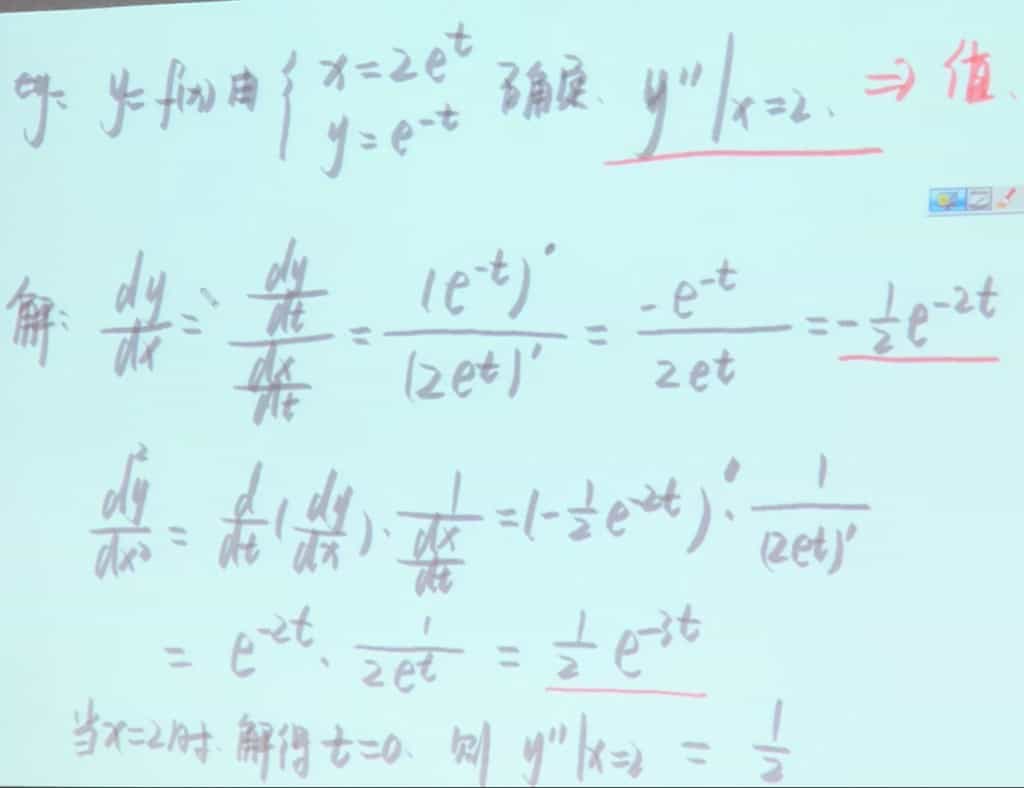 eg: y=f(x)由{x=2e^t y=e^{-t} 确定. y''|x=2. ⇒ 值.
解: dy/dx = (dy/dt)/(dx/dt) = (e^{-t})'/(2e^t)' = -e^{-t}/2e^t = -1/2 e^{-2t}
d²y/dx² = d/dt(dy/dx)·1/(dx/dt) = (-1/2 e^{-2t})'·1/(2e^t)'
= e^{-2t}·1/2e^t = 1/2 e^{-3t}
当x=2时. 解得t=0. 则 y''|x=2 = 1/2